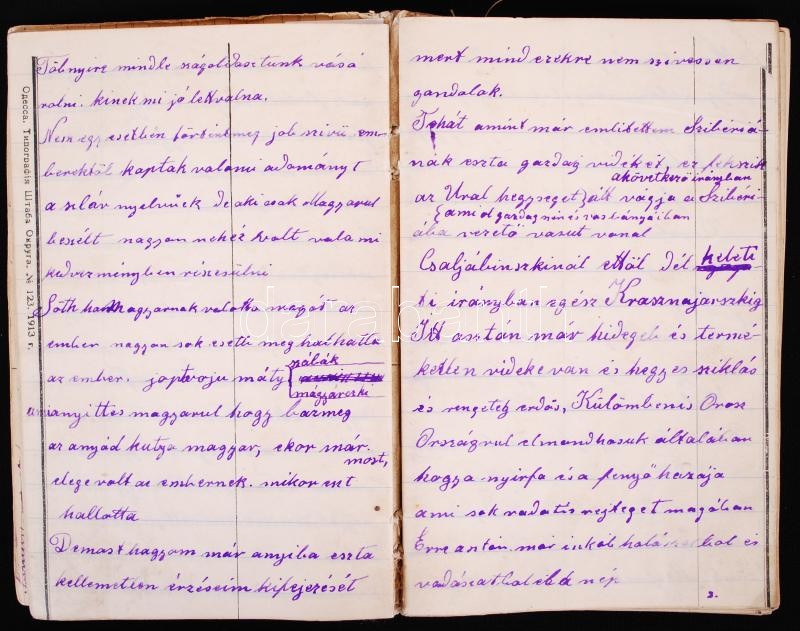 Többnyire mindle szágoldasztunk vásá
rolni. kinek mi jó lett volna.
Nem egy esetben történt meg job szivü em-
berektöl kaptak valami adományt
a szláv nyelvüek de aki csak Magyarul
beszélt nagyon nehéz volt vala mi
kedvezményben részesülni
Söth ha Magyarnak valotta magát az
ember nagyon sok esetli meg halhatta
az ember. joptvoju máty nálák
mágyarszki
ami anyittes magyarul hogy bazmeg
az anyád kutya magyar, ekor már
most,
elege volt az embernek. mikor ezt
hallotta
De mast hagyom már anyiba eszta
kellemetlen érzéseim kifejezését
Одесса. Типографія Штаба Округа. № 123. 1913 г.
mert mind ezekre nem szivessen
gandolok.
Tehát amint már emlitettem Szibériá-
nak eszta gazdag vidékét, ez fekszik
akövetkezö irányban
az Ural hegyseget átt vágja a Szibéri-
ami ol gazdag nér és vas bányáiban
ába vezetö vasut vonal
Csaljábinszkinál ettöl dél keleti
ti irányban egész Krasznajarszkig
Itt asztán már hidegeb és termé-
ketlen videke van és hegyes sziklás
és rengeteg erdös, Külömbenis Orosz
Országrul elmondhasuk általában
hogy a nyirfa és a fenyö hazája
ami sok vadat is rejteget magában
Erre aztán már inkáb halászatbol és
vadászatbol él a nép
3.
darabanth